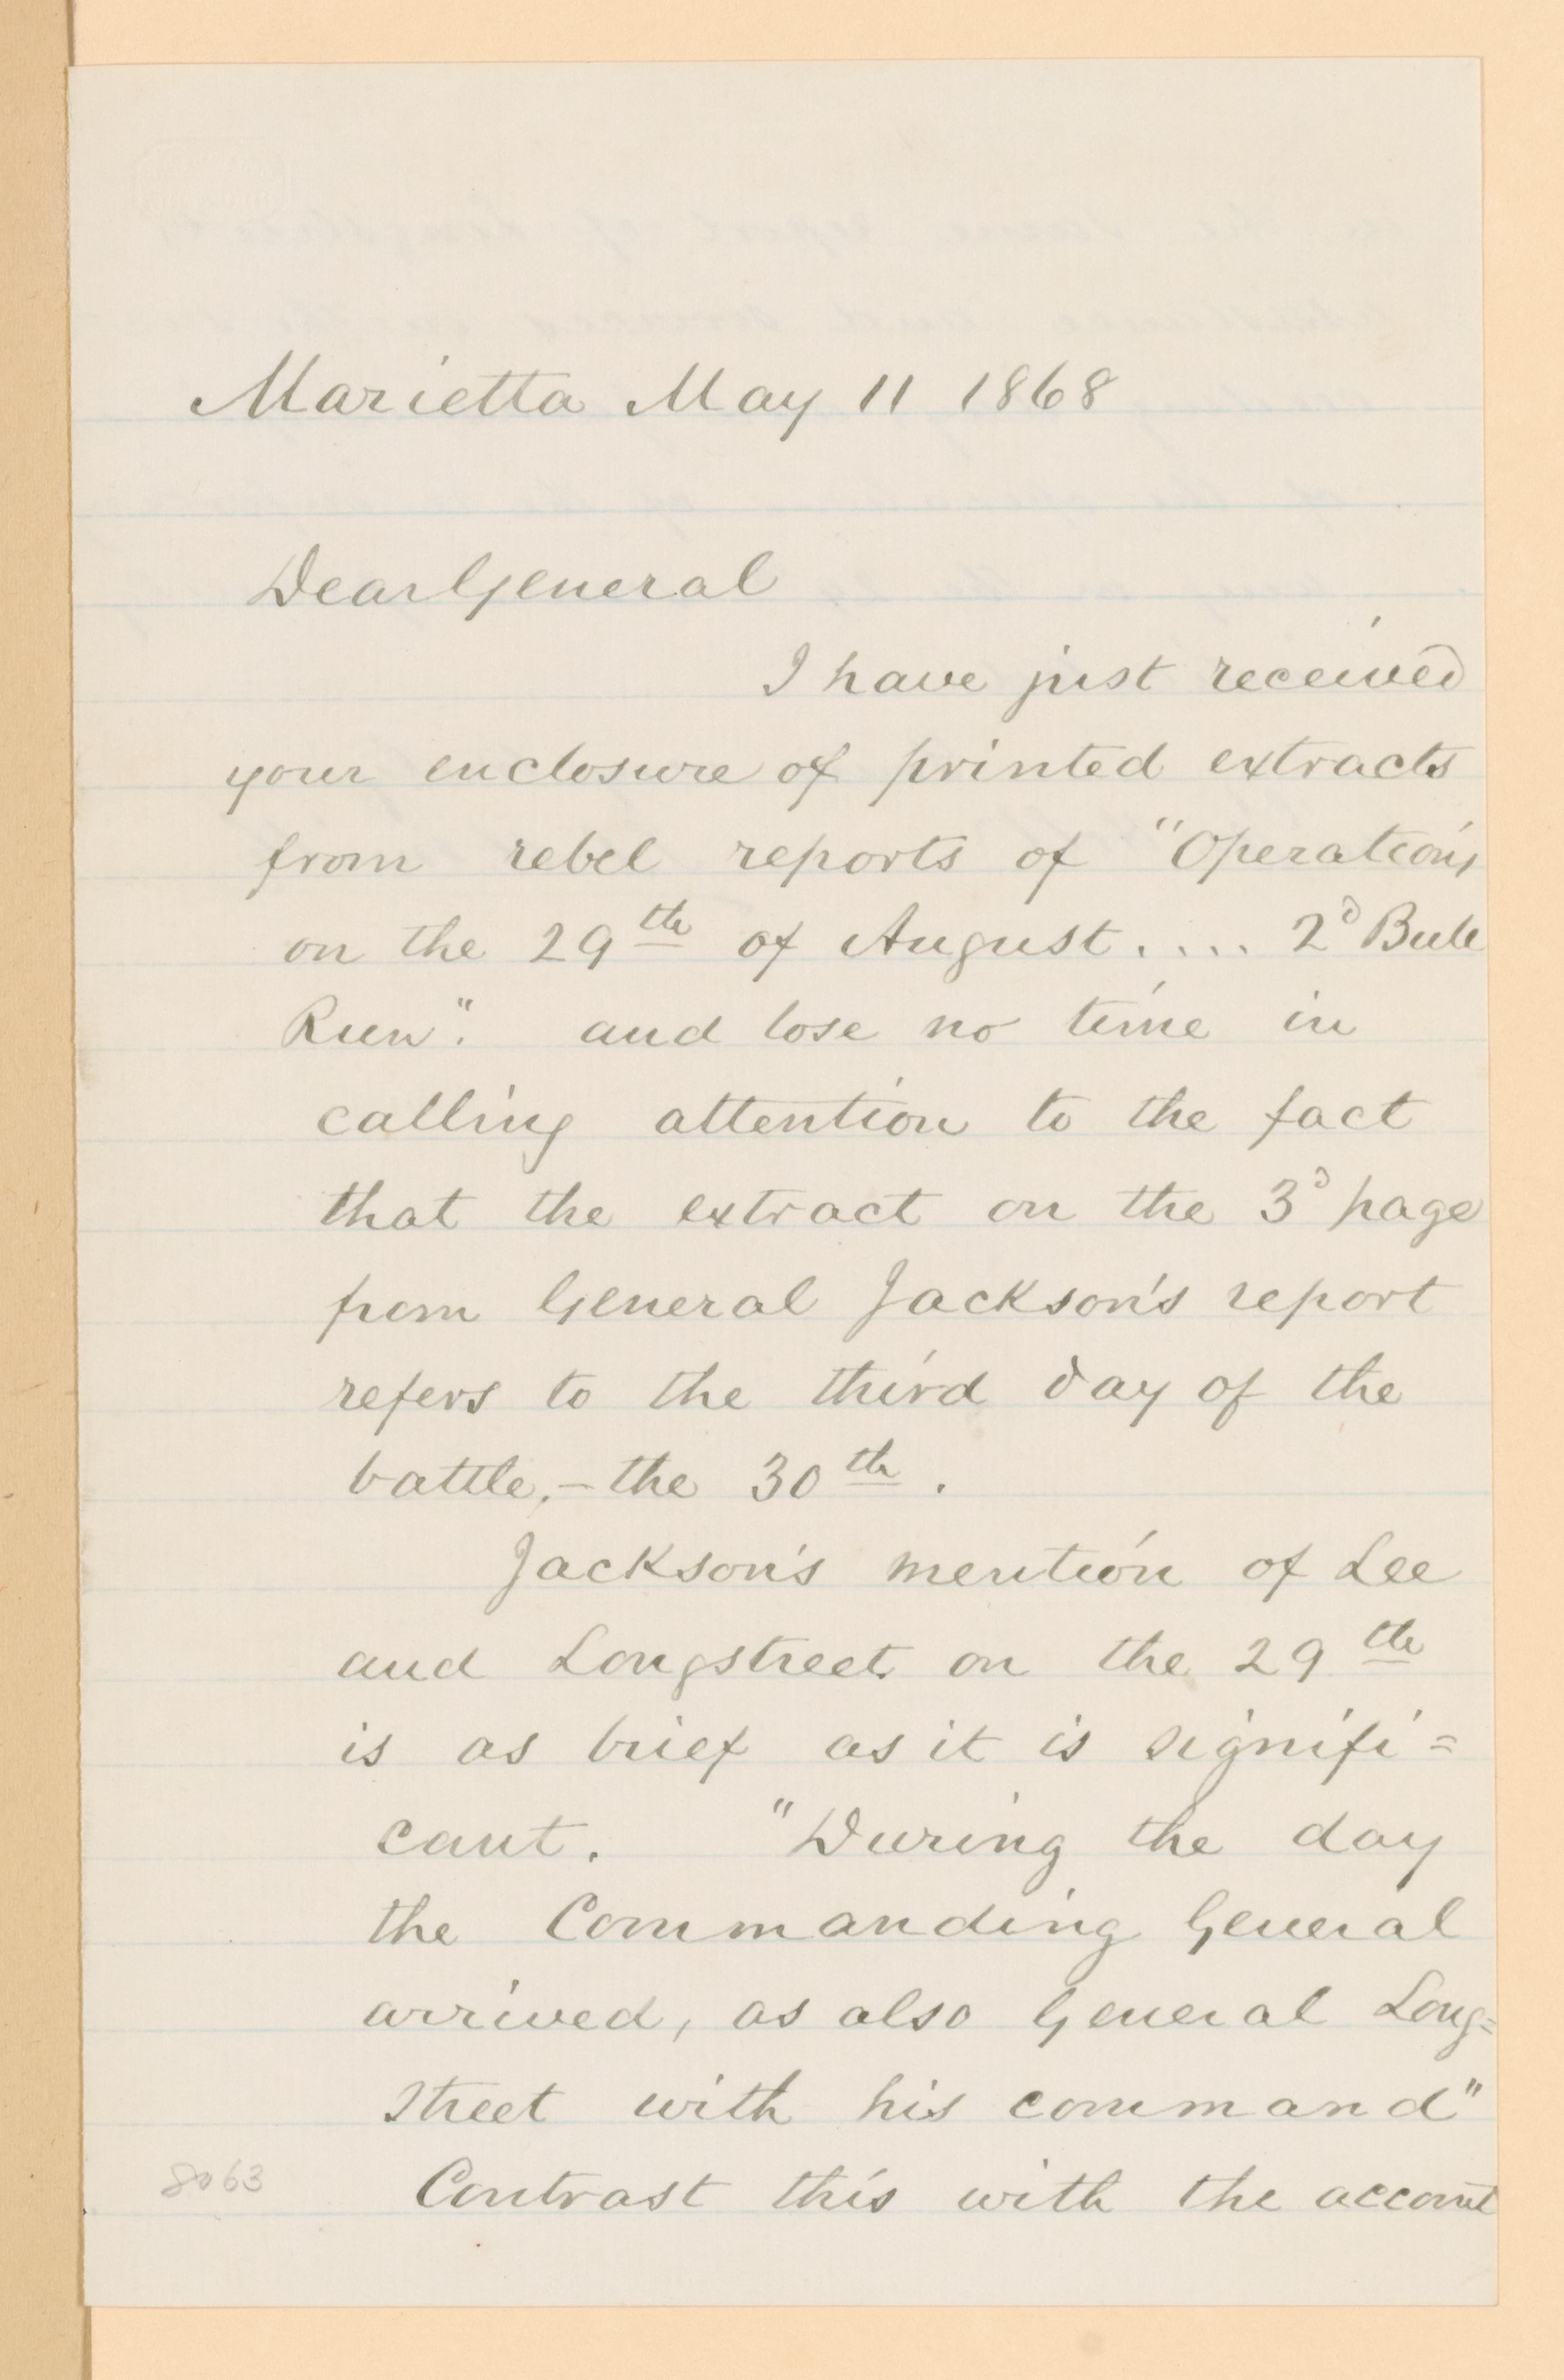 Marietta May 11 1868
Dear General
I have just received
your enclosure of printed extracts
from rebel reports of "Operations
on the 29th of August.... 2d Bull
Run". and lose no time in
calling attention to the fact
that the extract on the 3d page
from General Jackson's report
refers to the third day of the
battle,– the 30th.
Jackson's mention of Lee
and Longstreet on the 29th
is as brief as it is signifi=
cant. "During the day
the Commanding General
arrived, as also General Long=
street with his command"
Contrast this with the account
8063